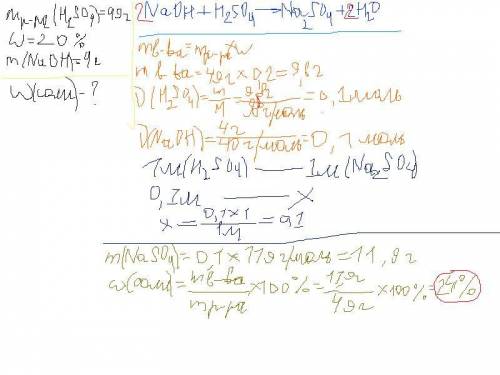 mр-ра(H2SO4)=49г
W=20%
m(NaOH)=4г
W(соли)-?
2NaOH+H2SO4→Na2SO4+2H2O
mв-ва=mр-ра×W
m в ва=49г×0,2=9,8г
ν(H2SO4)=m/M=9,8г/98г/моль=0,1моль
ν(NaOH)=4г/40г/моль=0,1моль
1м(H2SO4) — 1м(Na2SO4)
0,1м — X
x=0,1×1/1м=0,1
m(NaSO4)=0,1×119г/моль=11,9г
w(соли)=mв-ва/mр-ра×100%=11,9г/49г×100%=24%